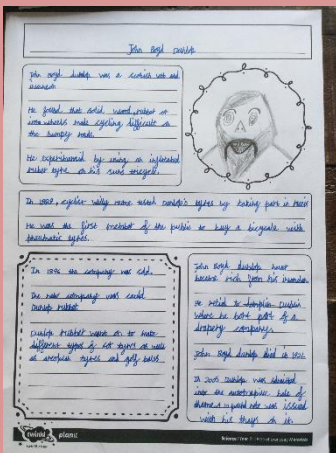 John Boyd Dunlop
John Boyd Dunlop was a scotish vet and
inventor
He found that solid, wood, rubber or
iron wheels made cycling difficult on
the bumpy roads.
He experimented by using an inflated
rubber tyre on his sons tricycle.
In 1889, cyclist willy hume used Dunlop's tyres by taking part in races
He was the first member of the public to buy a bicycle with
pneumatic tyres.
In 1896 the company was sold.
The new company was called
Dunlop Rubber
Dunlop Rubber went on to make
different types of car tyres as well
as aeroplane tyres and golf balls
John Boyd dunlop never
became rich from his invention
He retired to Dublin
where he bort part of a
drapery company.
John Boyd dunlop died in 1921
In 2005 Dunlop was admitted
into the automotive hall of
fame
was issued
with his on it.
twinkl
plans